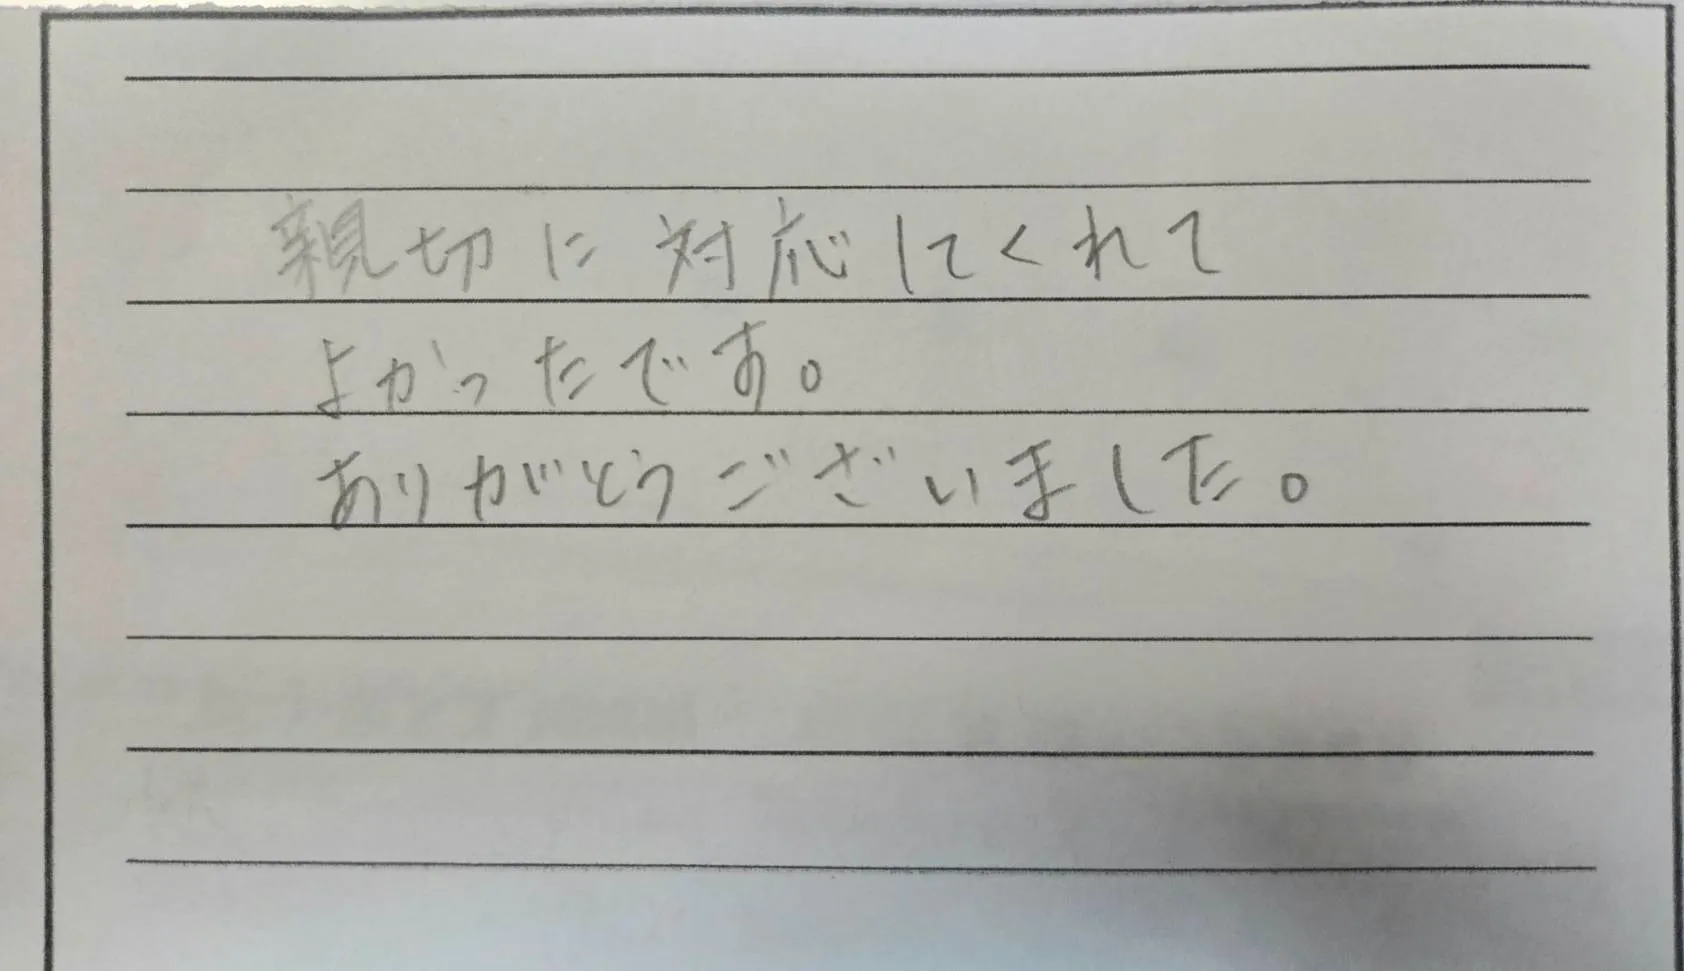 親切に対応してくれて
よかったです。
ありがとうございました。